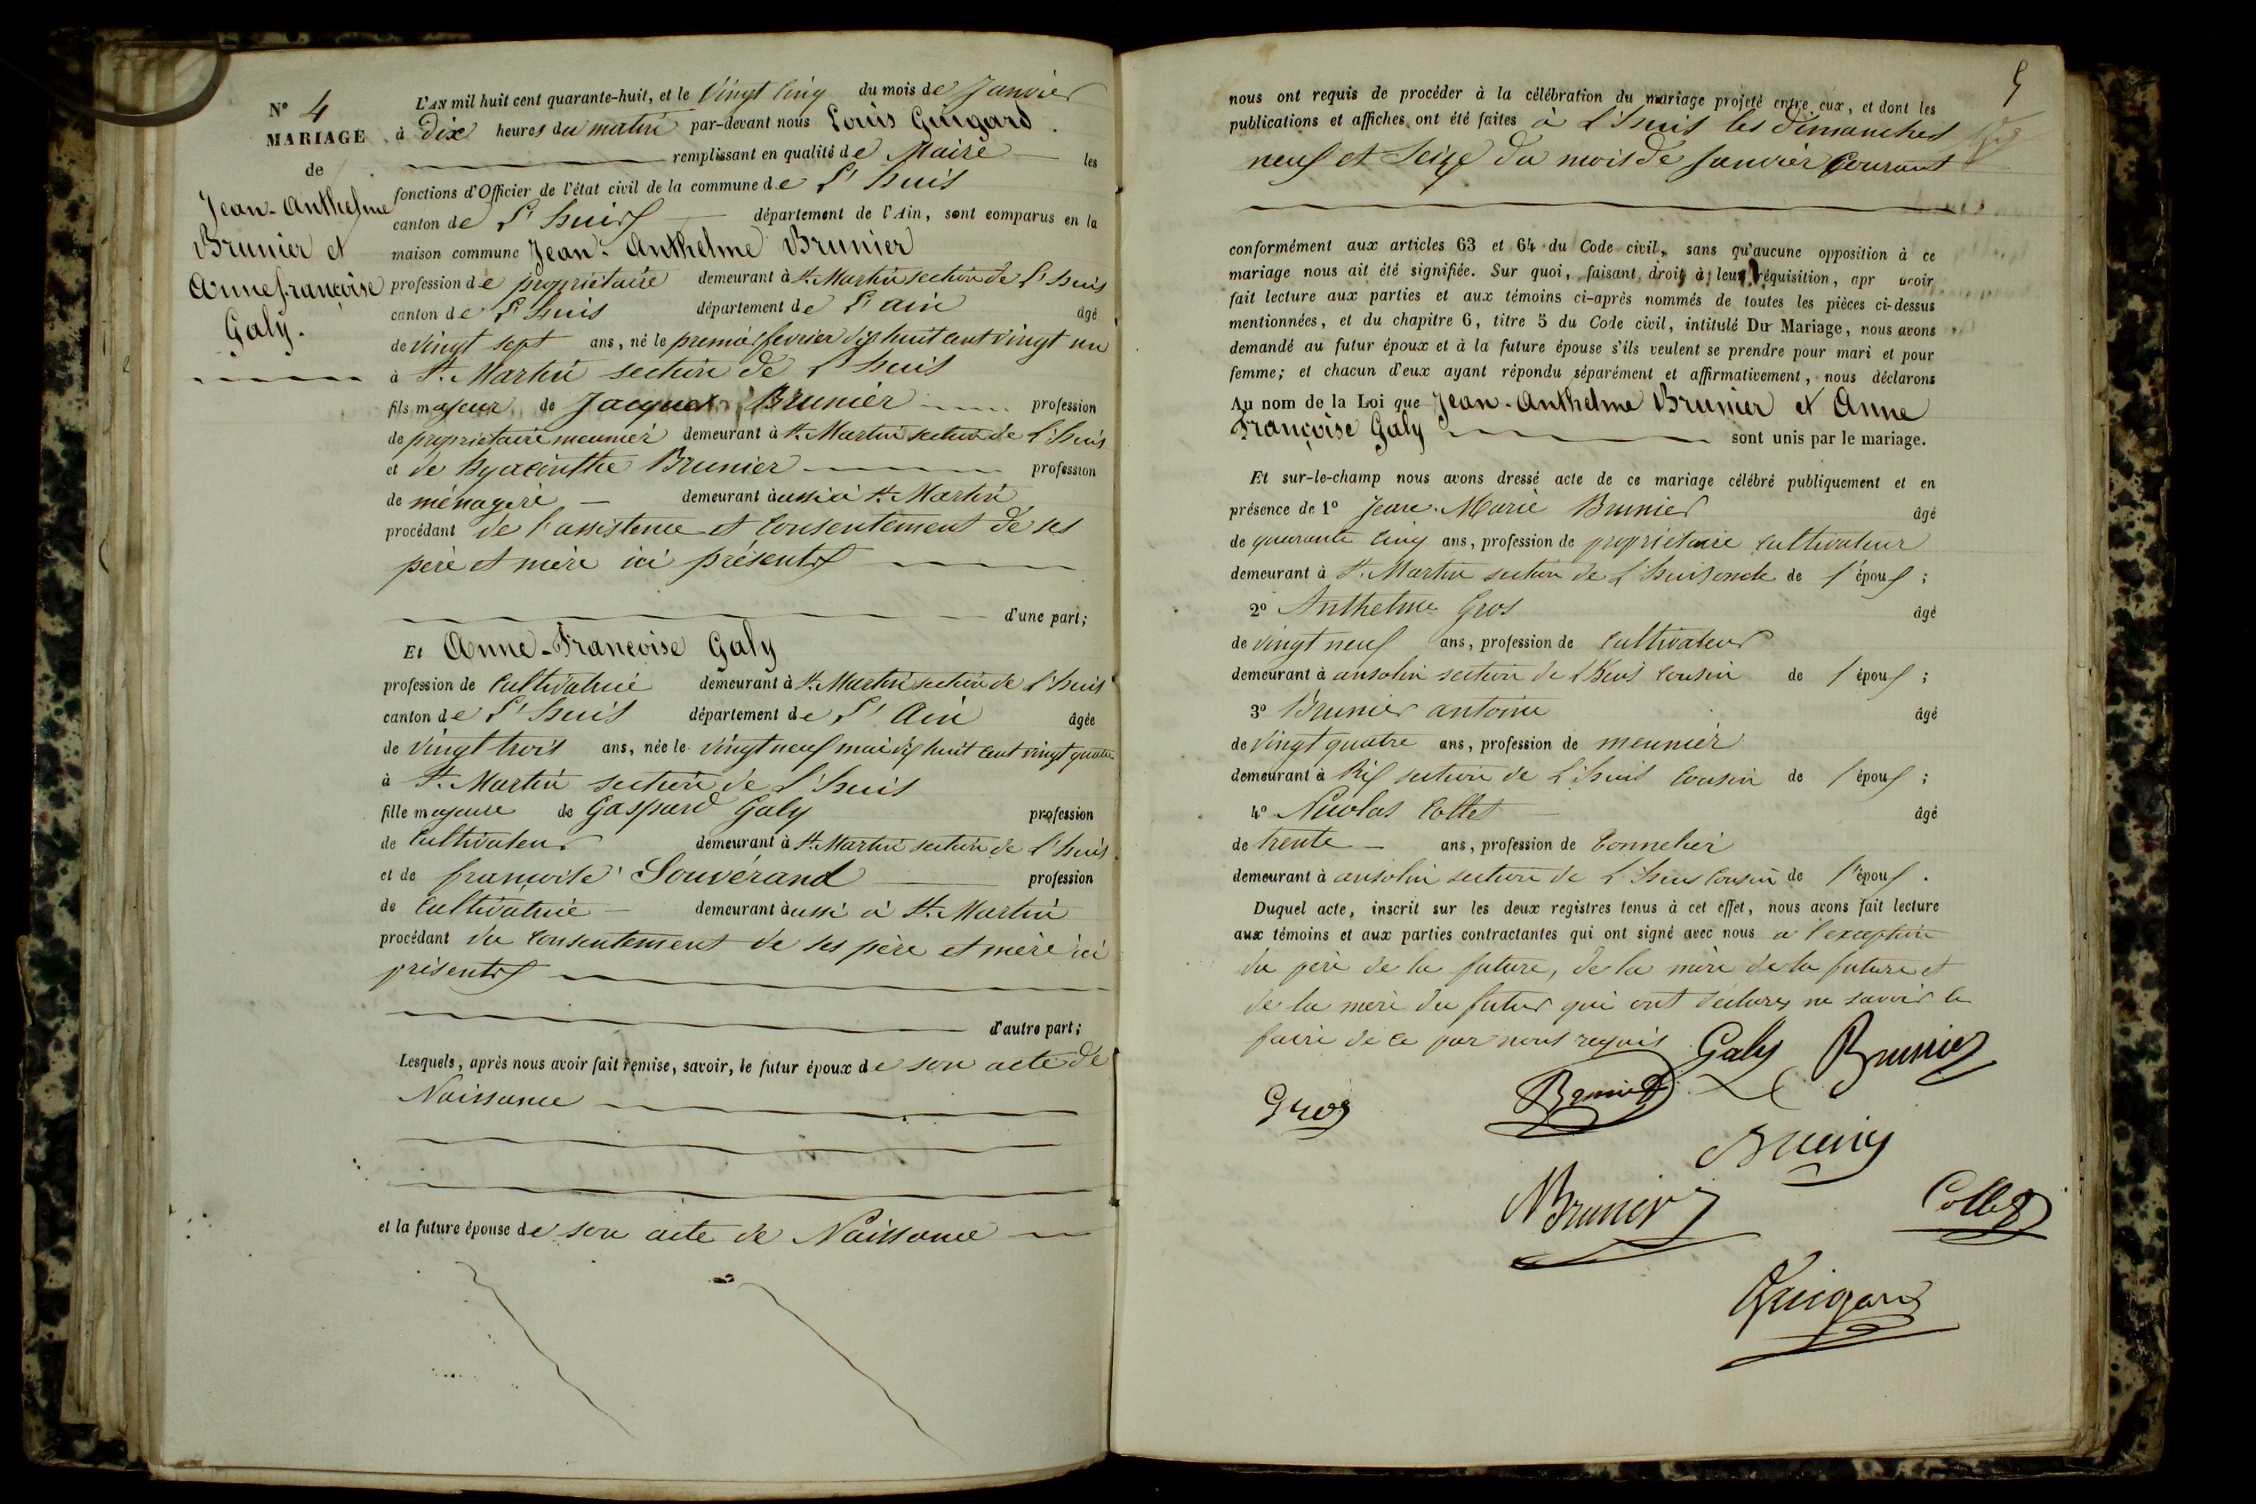 N° 4
MARIAGE
de
Jean-Anthelme
Brunier et
Anne françoise
Galy.
L'AN mil huit cent quarante-huit, et le Vingt Cinq du mois de Janvier
à dix heures du matin par-devant nous Louis Guigard.
remplissant en qualité de Maire les
fonctions d'Officier de l'état civil de la commune de L'huis
canton de L'huis département de l'Ain, sont comparus en la
maison commune Jean-Anthelme Brunier
profession de propriétaire demeurant à St. Martin section de L'huis
canton de L'huis département de L'ain âgé
de vingt sept ans, né le premier fevrier dix huit cent vingt un
à St. Martin section de L'huis
fils majeur de Jacques Brunier profession
de propriétaire meunier demeurant à St. Martin section de L'huis
et de hyacinthe Brunier profession
de ménagère demeurant aussi à St. Martin
procédant de l'assistence et consentement de ses
père et mère ici présents
d'une part;
Et Anne-Françoise Galy
profession de Cultivatrice demeurant à St. Martin section de L'huis
canton de L'huis département de L'Ain âgée
de vingt trois ans, née le vingt neuf mai dix huit cent vingt quatre
à St. Martin section de L'huis
fille majeure de Gaspard Galy profession
de Cultivateur demeurant à St. Martin section de L'huis
et de françoise Souvérand profession
de Cultivatrice demeurant aussi à St. Martin
procédant du consentement de ses père et mère ici
présents
d'autre part;
Lesquels, après nous avoir fait remise, savoir, le futur époux de son acte de
Naissance
et la future épouse de son acte de Naissance
5
nous ont requis de procéder à la célébration du mariage projeté entre eux, et dont les
publications et affiches ont été faites à L'huis les dimanches
neuf et Seize du mois de Janvier Courant
conformément aux articles 63 et 64 du Code civil, sans qu'aucune opposition à ce
mariage nous ait été signifiée. Sur quoi, faisant droit à leur réquisition, apr avoir
fait lecture aux parties et aux témoins ci-après nommés de toutes les pièces ci-dessus
mentionnées, et du chapitre 6, titre 5 du Code civil, intitulé Du Mariage, nous avons
demandé au futur époux et à la future épouse s'ils veulent se prendre pour mari et pour
femme; et chacun d'eux ayant répondu séparément et affirmativement, nous déclarons
Au nom de la Loi que Jean-Anthelme Brunier et Anne
Françoise Galy sont unis par le mariage.
Et sur-le-champ nous avons dressé acte de ce mariage célébré publiquement et en
présence de 1° Jean-Marie Brunier âgé
de quarante cinq ans, profession de propriétaire cultivateur
demeurant à St. Martin section de L'huis oncle de l'époux;
2° Anthelme Gros âgé
de vingt neuf ans, profession de Cultivateur
demeurant à ansolin section de L'huis cousin de l'époux;
3° Brunier antoine âgé
de vingt quatre ans, profession de meunier
demeurant à Rix section de L'huis cousin de l'époux;
4° Nicolas Collet âgé
de trente ans, profession de tonnelier
demeurant à ansolin section de L'huis Cousin de l'époux.
Duquel acte, inscrit sur les deux registres tenus à cet effet, nous avons fait lecture
aux témoins et aux parties contractantes qui ont signé avec nous a l'exception
du père de la future, de la mère de la future et
de la mère du futur qui ont déclaré ne savoir le
faire de ce par nous requis
Galy Brunier
Gros Brunier
Brunier
Brunier Collet
Guigard